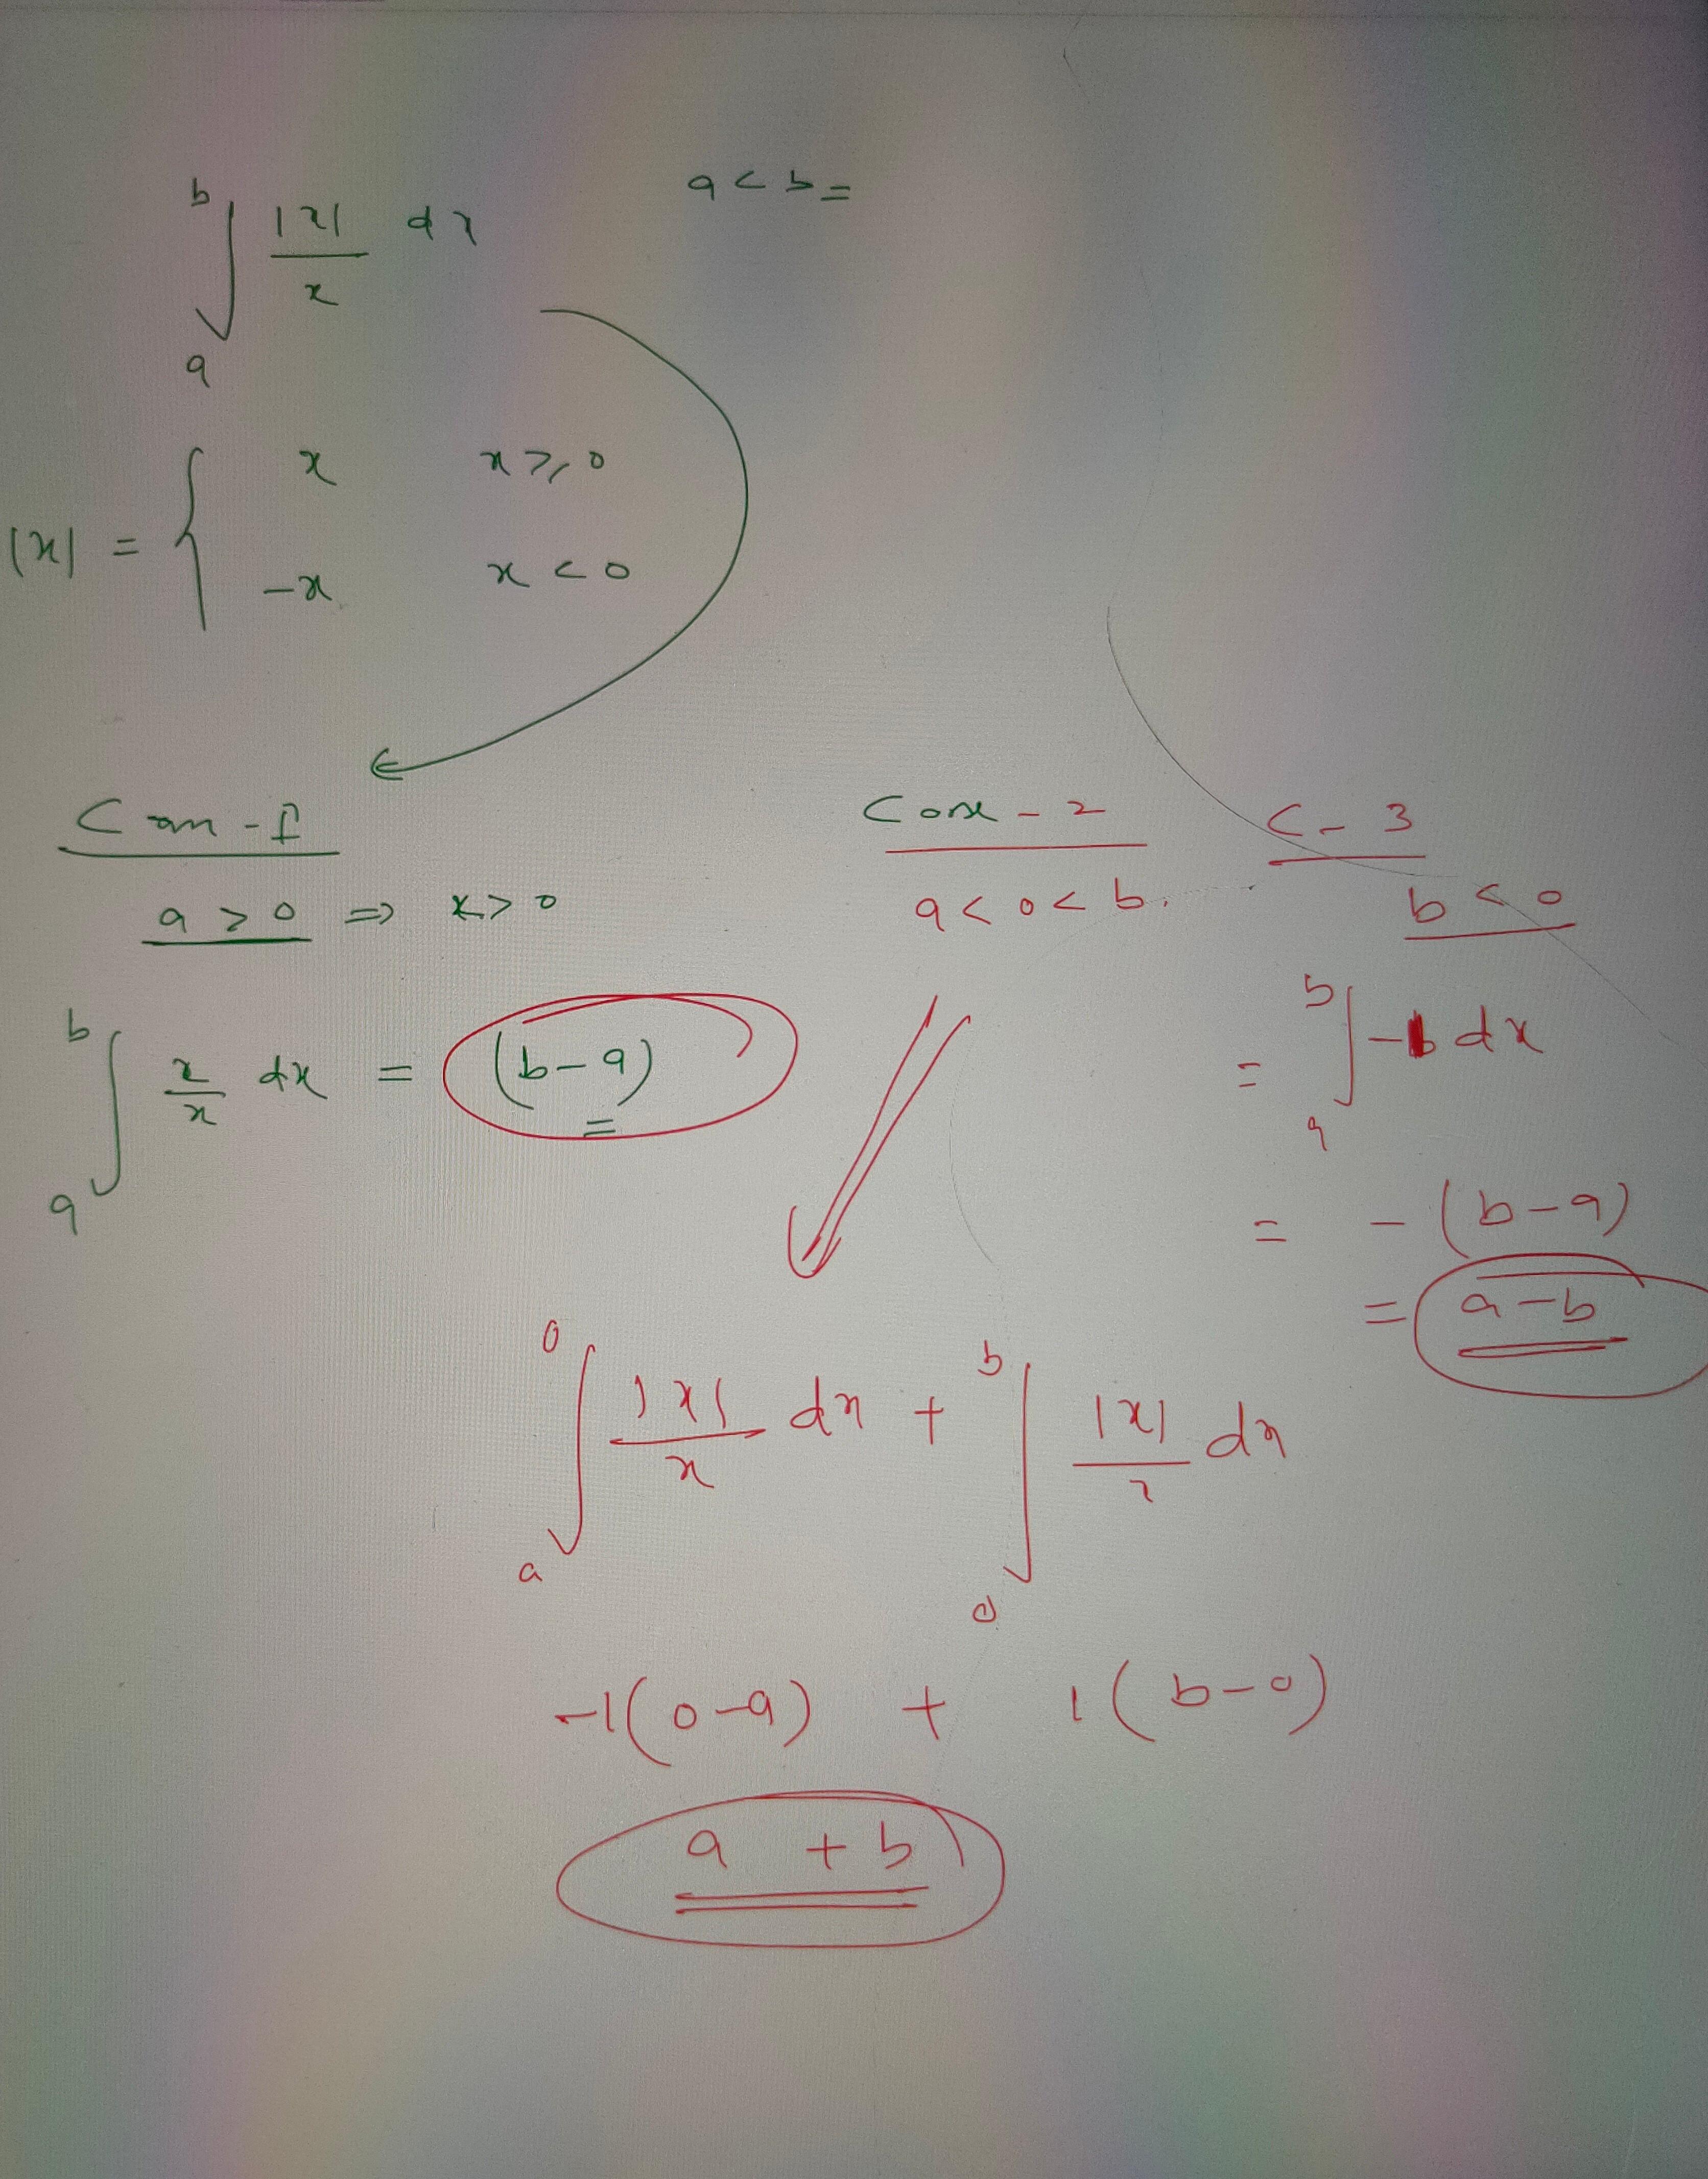 ∫_a^b |x|/x dx    a < b =
|x| = { x    x ≥ 0
-x    x < 0
Case - 1
a > 0 ⇒ x > 0
∫_a^b x/x dx = (b-a)
Case - 2
a < 0 < b.
∫_a^0 |x|/x dx + ∫_0^b |x|/x dx
-1(0-a) + 1(b-0)
a + b
C - 3
b < 0
= ∫_a^b -1 dx
= -(b-a)
= a-b